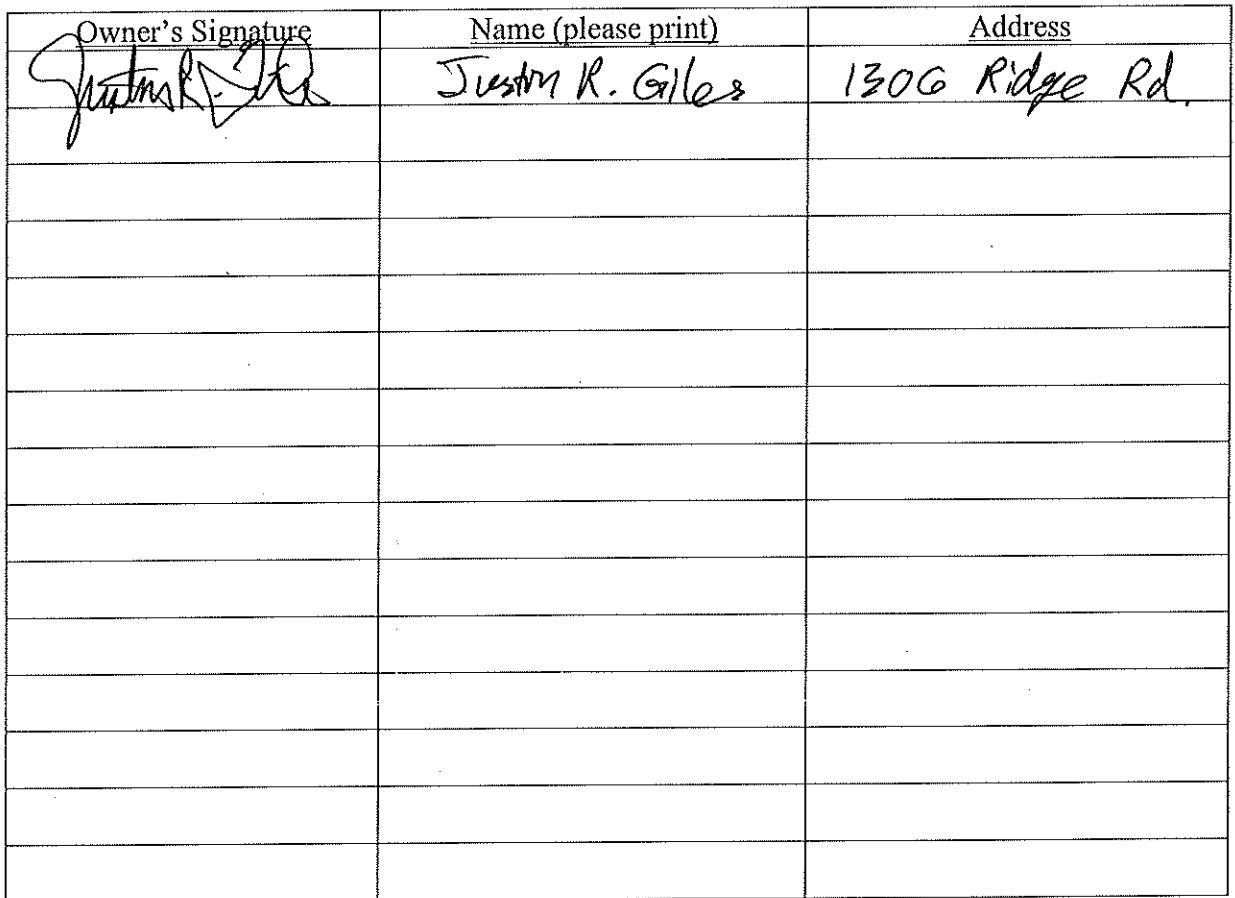 Owner's Signature Name (please print) Address
Justin R. Giles 1306 Ridge Rd.